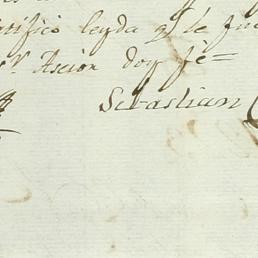 tifico leyda q̃ le fue
Ascion doy fe=
Sebastian